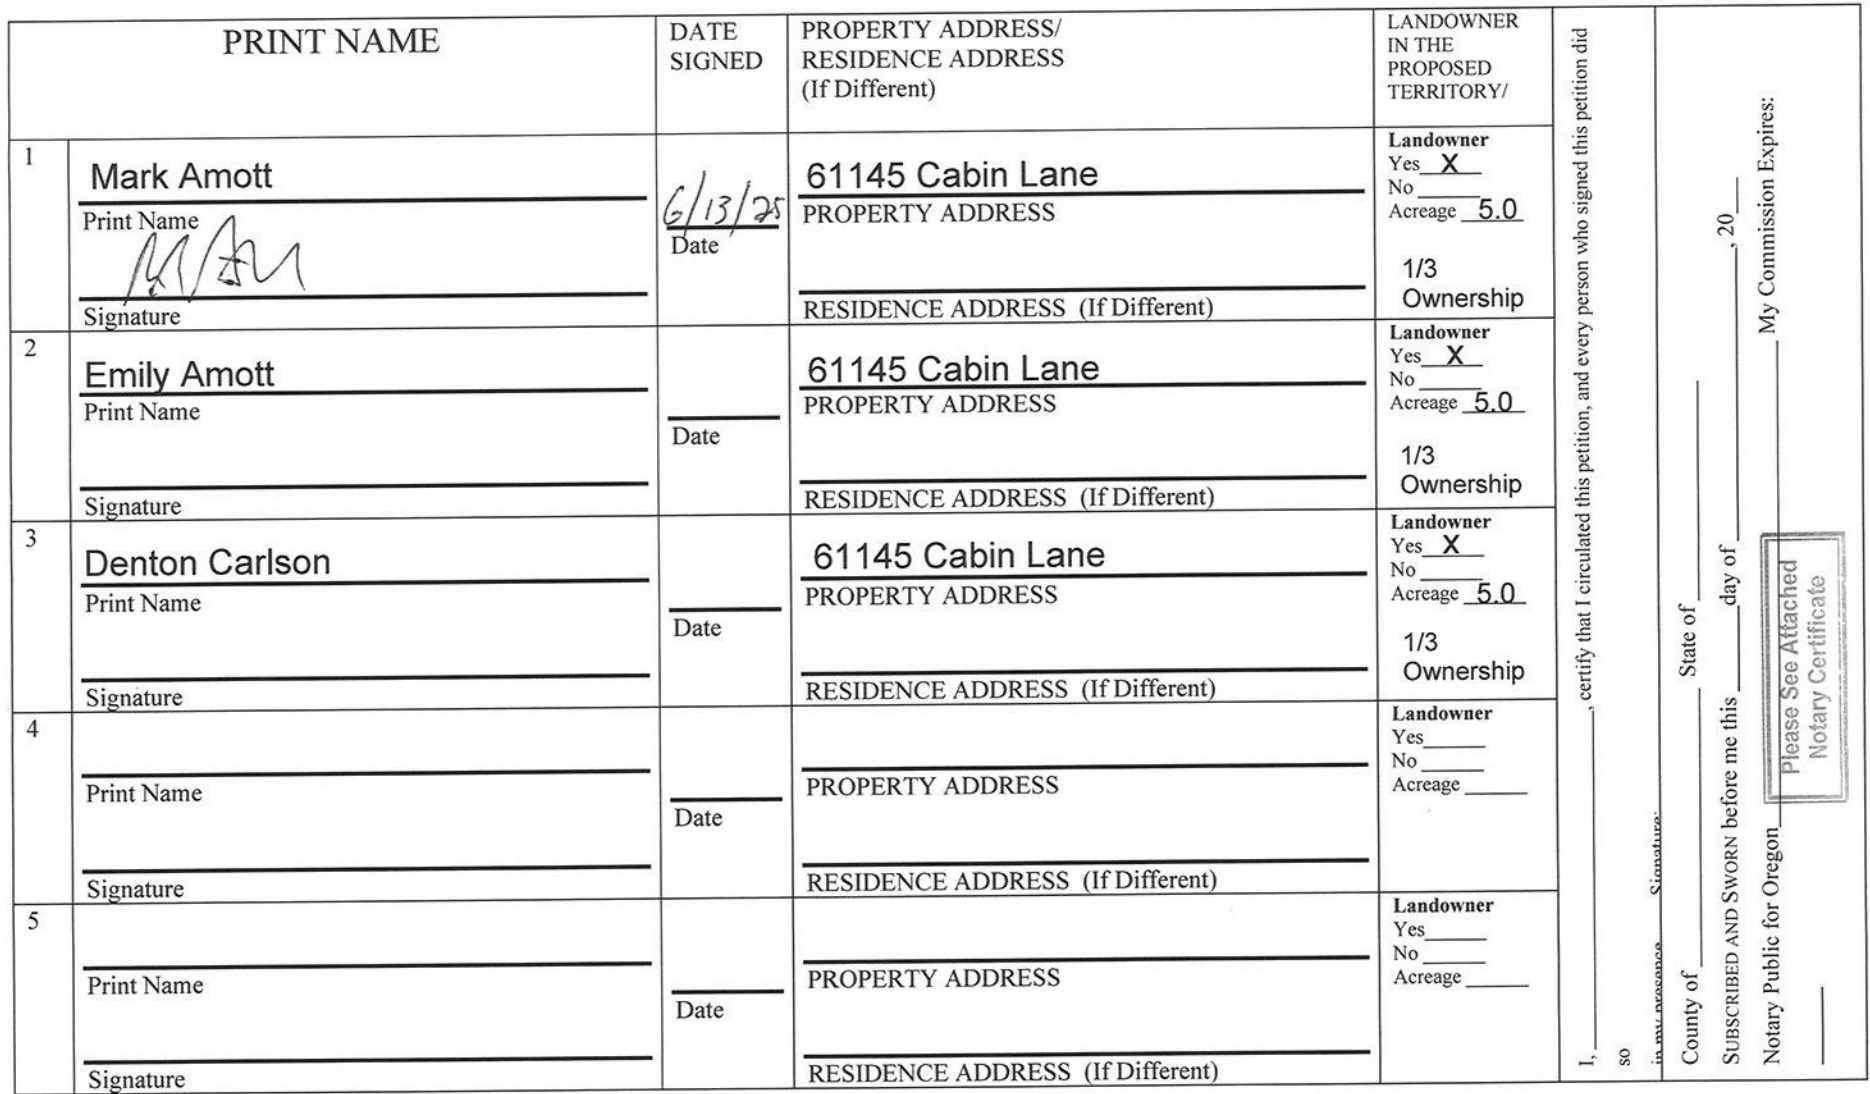 PRINT NAME
DATE
SIGNED
PROPERTY ADDRESS/
RESIDENCE ADDRESS
(If Different)
LANDOWNER
IN THE
PROPOSED
TERRITORY/
1
Mark Amott
Print Name
Signature
6/13/25
Date
61145 Cabin Lane
PROPERTY ADDRESS
RESIDENCE ADDRESS (If Different)
Landowner
Yes X
No
Acreage 5.0
1/3
Ownership
2
Emily Amott
Print Name
Signature
Date
61145 Cabin Lane
PROPERTY ADDRESS
RESIDENCE ADDRESS (If Different)
Landowner
Yes X
No
Acreage 5.0
1/3
Ownership
3
Denton Carlson
Print Name
Signature
Date
61145 Cabin Lane
PROPERTY ADDRESS
RESIDENCE ADDRESS (If Different)
Landowner
Yes X
No
Acreage 5.0
1/3
Ownership
4
Print Name
Signature
Date
PROPERTY ADDRESS
RESIDENCE ADDRESS (If Different)
Landowner
Yes
No
Acreage
5
Print Name
Signature
Date
PROPERTY ADDRESS
RESIDENCE ADDRESS (If Different)
Landowner
Yes
No
Acreage
I, , certify that I circulated this petition, and every person who signed this petition did
so
in my presence Signature:
County of State of
SUBSCRIBED AND SWORN before me this day of , 20
Notary Public for Oregon My Commission Expires:
Please See Attached
Notary Certificate